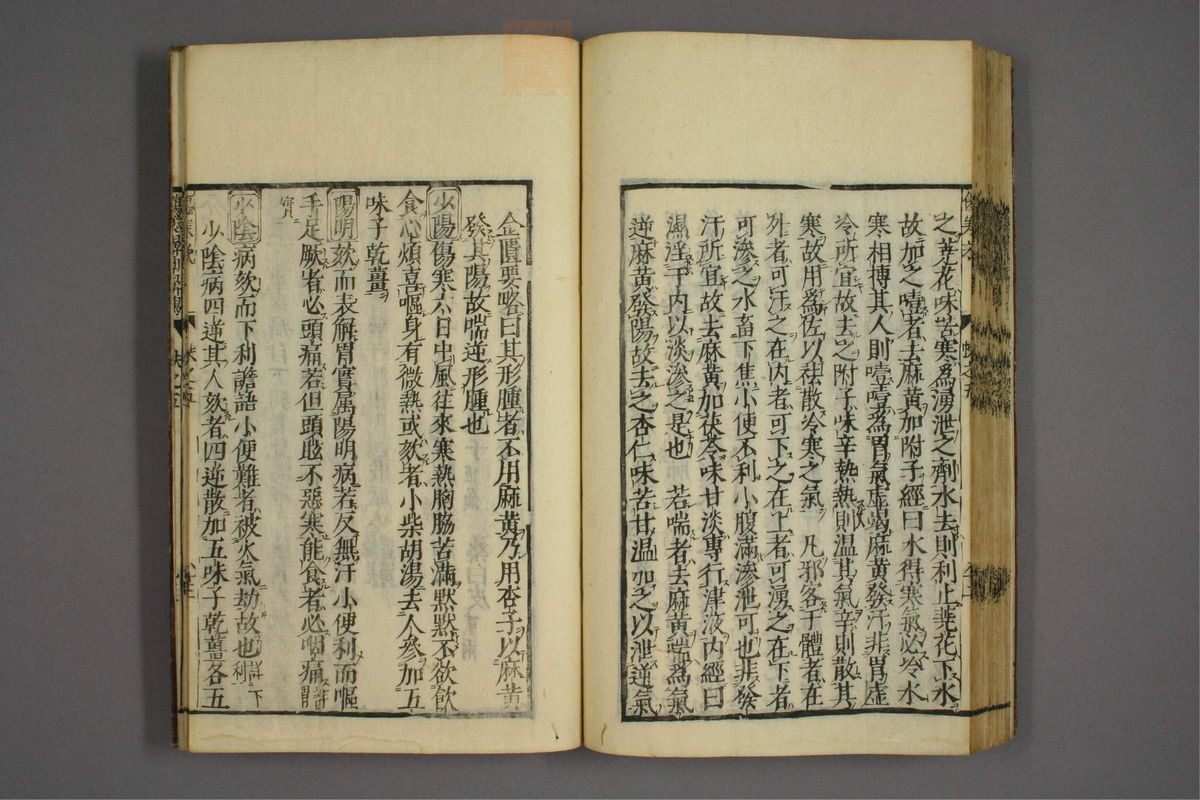 之蕘花味苦寒爲湧泄之劑水去則利止蕘花下水
故加之噎者去麻黃加附子經曰水得寒氣必冷水
寒相搏其人則噎噎爲胃氣虛竭麻黃發汗非胃虛
冷所宜故去之附子味辛熱熱則溫其氣辛則散其
寒故用爲佐以祛散冷寒之氣 凡邪客于體者在
外者可汗之在內者可下之在上者可湧之在下者
可滲之水畜下焦小便不利小腹滿滲泄可也非發
汗所宜故去麻黃加茯苓味甘淡專行津液內經曰
濕淫于內以淡滲之是也 若喘者去麻黃喘爲氣
逆麻黃發陽故去之杏仁味苦甘溫加之以泄逆氣
金匱要略曰其形腫者不用麻黃乃用杏子以麻黃
發其陽故喘逆形腫也
少陽傷寒六日中風往來寒熱胸脇苦滿默默不欲飲
食心煩喜嘔身有微熱或欬者小柴胡湯去人參加五
味子乾薑
陽明欬而表解胃實属陽明病若反無汗小便利而嘔
手足厥者必頭痛若但頭眩不惡寒能食者必咽痛
少陰病欬而下利譫語小便難者被火氣劫故也
少陰病四逆其人欬者四逆散加五味子乾薑各五